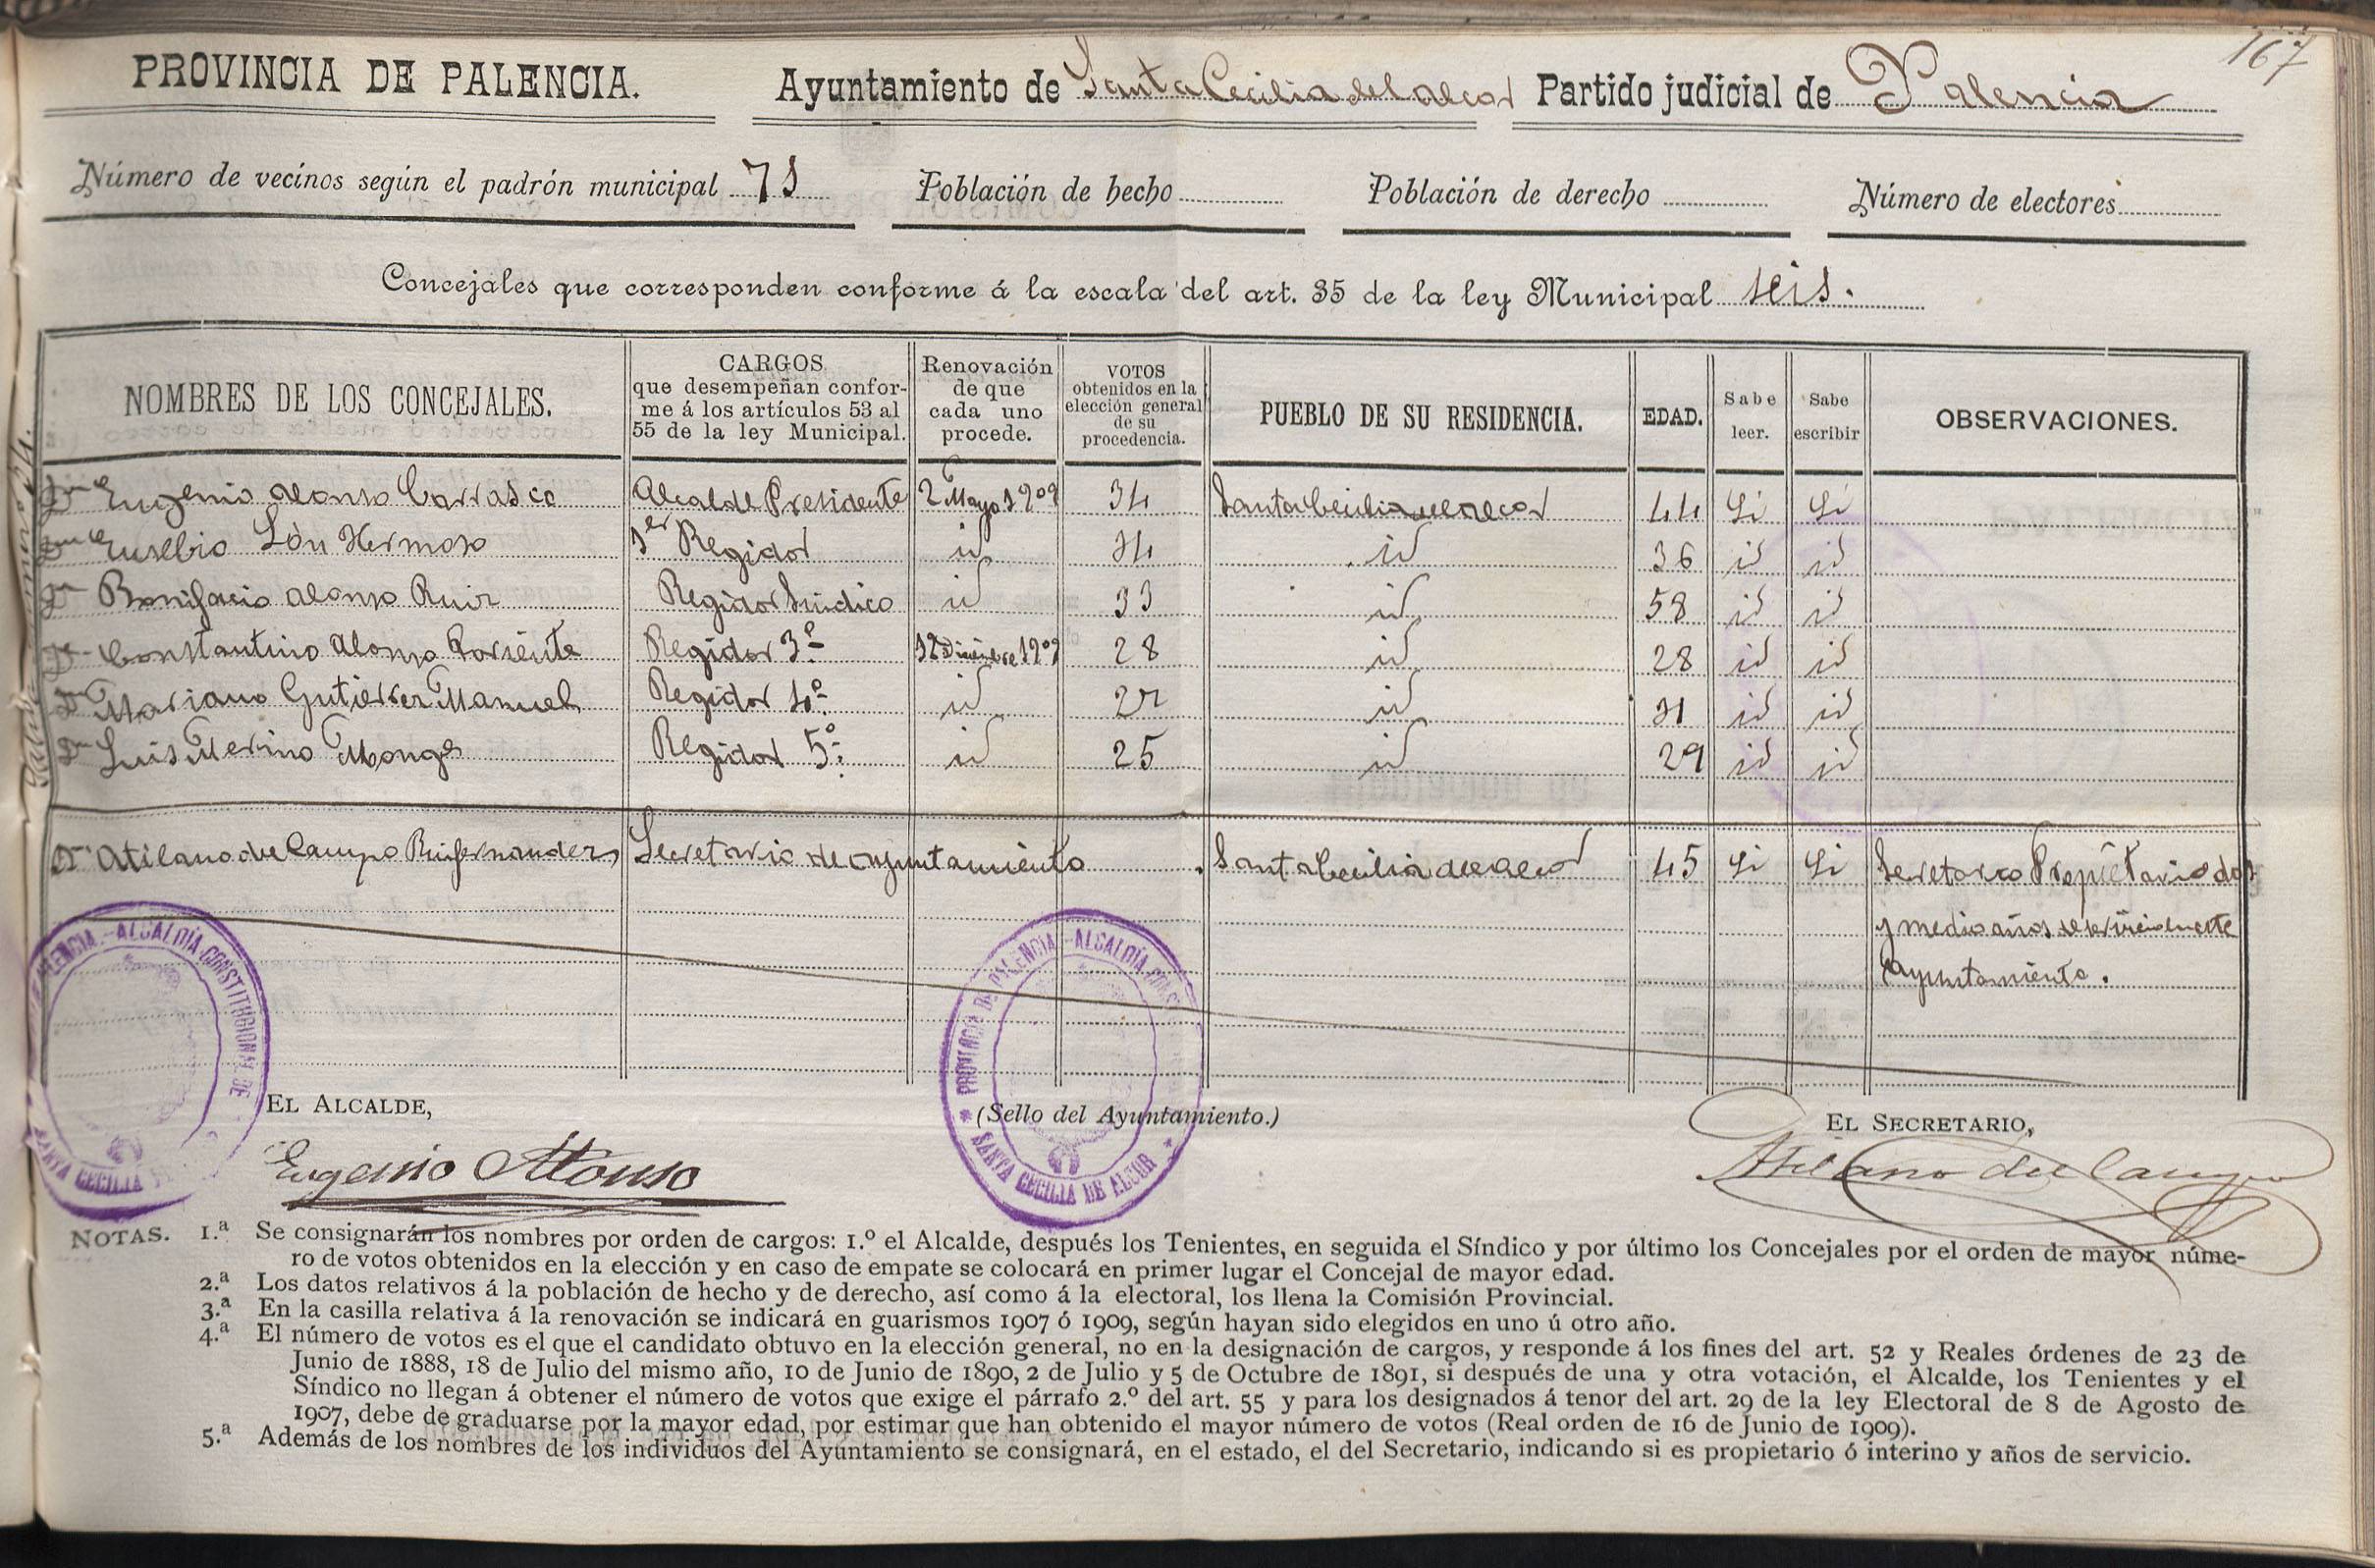 167
PROVINCIA DE PALENCIA. Ayuntamiento de Santa Cecilia del alcor Partido judicial de Palencia
Número de vecinos según el padrón municipal 71 Población de hecho Población de derecho Número de electores
Concejales que corresponden conforme á la escala del art. 35 de la ley Municipal seis.
NOMBRES DE LOS CONCEJALES. CARGOS que desempeñan conforme á los artículos 53 al 55 de la ley Municipal. Renovación de que cada uno procede. VOTOS obtenidos en la elección general de su procedencia. PUEBLO DE SU RESIDENCIA. EDAD. Sabe leer. Sabe escribir OBSERVACIONES.
Dn Eugenio alonso Carrasco Alcalde Presidente 2 Mayo 1909 34 Santa Cecilia del alcor 44 Si Si
Dn Eusebio Hermoso 1er Regidor id 34 id 36 id id
Dn Bonifacio alonso Ruiz Regidor Sindico id 33 id 58 id id
Dn Constantino Alonso Regidor 3º 12 Diciembre 1909 28 id 28 id id
Dn Mariano Gutierrez Manuel Regidor 4º id 27 id 31 id id
Dn Luis Merino Monge Regidor 5º id 25 id 29 id id
Dn Atilano del Campo Ruifernandez Secretario de ayuntamiento Santa Cecilia del alcor 45 Si Si Secretario Propietario dos
y medio años de servicio en este
Ayuntamiento.
PALENCIA.-ALCALDÍA CONSTITUCIONAL DE SANTA CECILIA
PROVINCIA DE PALENCIA-ALCALDÍA CONST
* SANTA CECILIA DE ALCOR *
EL ALCALDE, (Sello del Ayuntamiento.) EL SECRETARIO,
Eugenio Alonso Atilano del Campo
NOTAS. 1.ª Se consignarán los nombres por orden de cargos: 1.º el Alcalde, después los Tenientes, en seguida el Síndico y por último los Concejales por el orden de mayor núme-
ro de votos obtenidos en la elección y en caso de empate se colocará en primer lugar el Concejal de mayor edad.
2.ª Los datos relativos á la población de hecho y de derecho, así como á la electoral, los llena la Comisión Provincial.
3.ª En la casilla relativa á la renovación se indicará en guarismos 1907 ó 1909, según hayan sido elegidos en uno ú otro año.
4.ª El número de votos es el que el candidato obtuvo en la elección general, no en la designación de cargos, y responde á los fines del art. 52 y Reales órdenes de 23 de
Junio de 1888, 18 de Julio del mismo año, 10 de Junio de 1890, 2 de Julio y 5 de Octubre de 1891, si después de una y otra votación, el Alcalde, los Tenientes y el
Síndico no llegan á obtener el número de votos que exige el párrafo 2.º del art. 55 y para los designados á tenor del art. 29 de la ley Electoral de 8 de Agosto de
1907, debe de graduarse por la mayor edad, por estimar que han obtenido el mayor número de votos (Real orden de 16 de Junio de 1909).
5.ª Además de los nombres de los individuos del Ayuntamiento se consignará, en el estado, el del Secretario, indicando si es propietario ó interino y años de servicio.